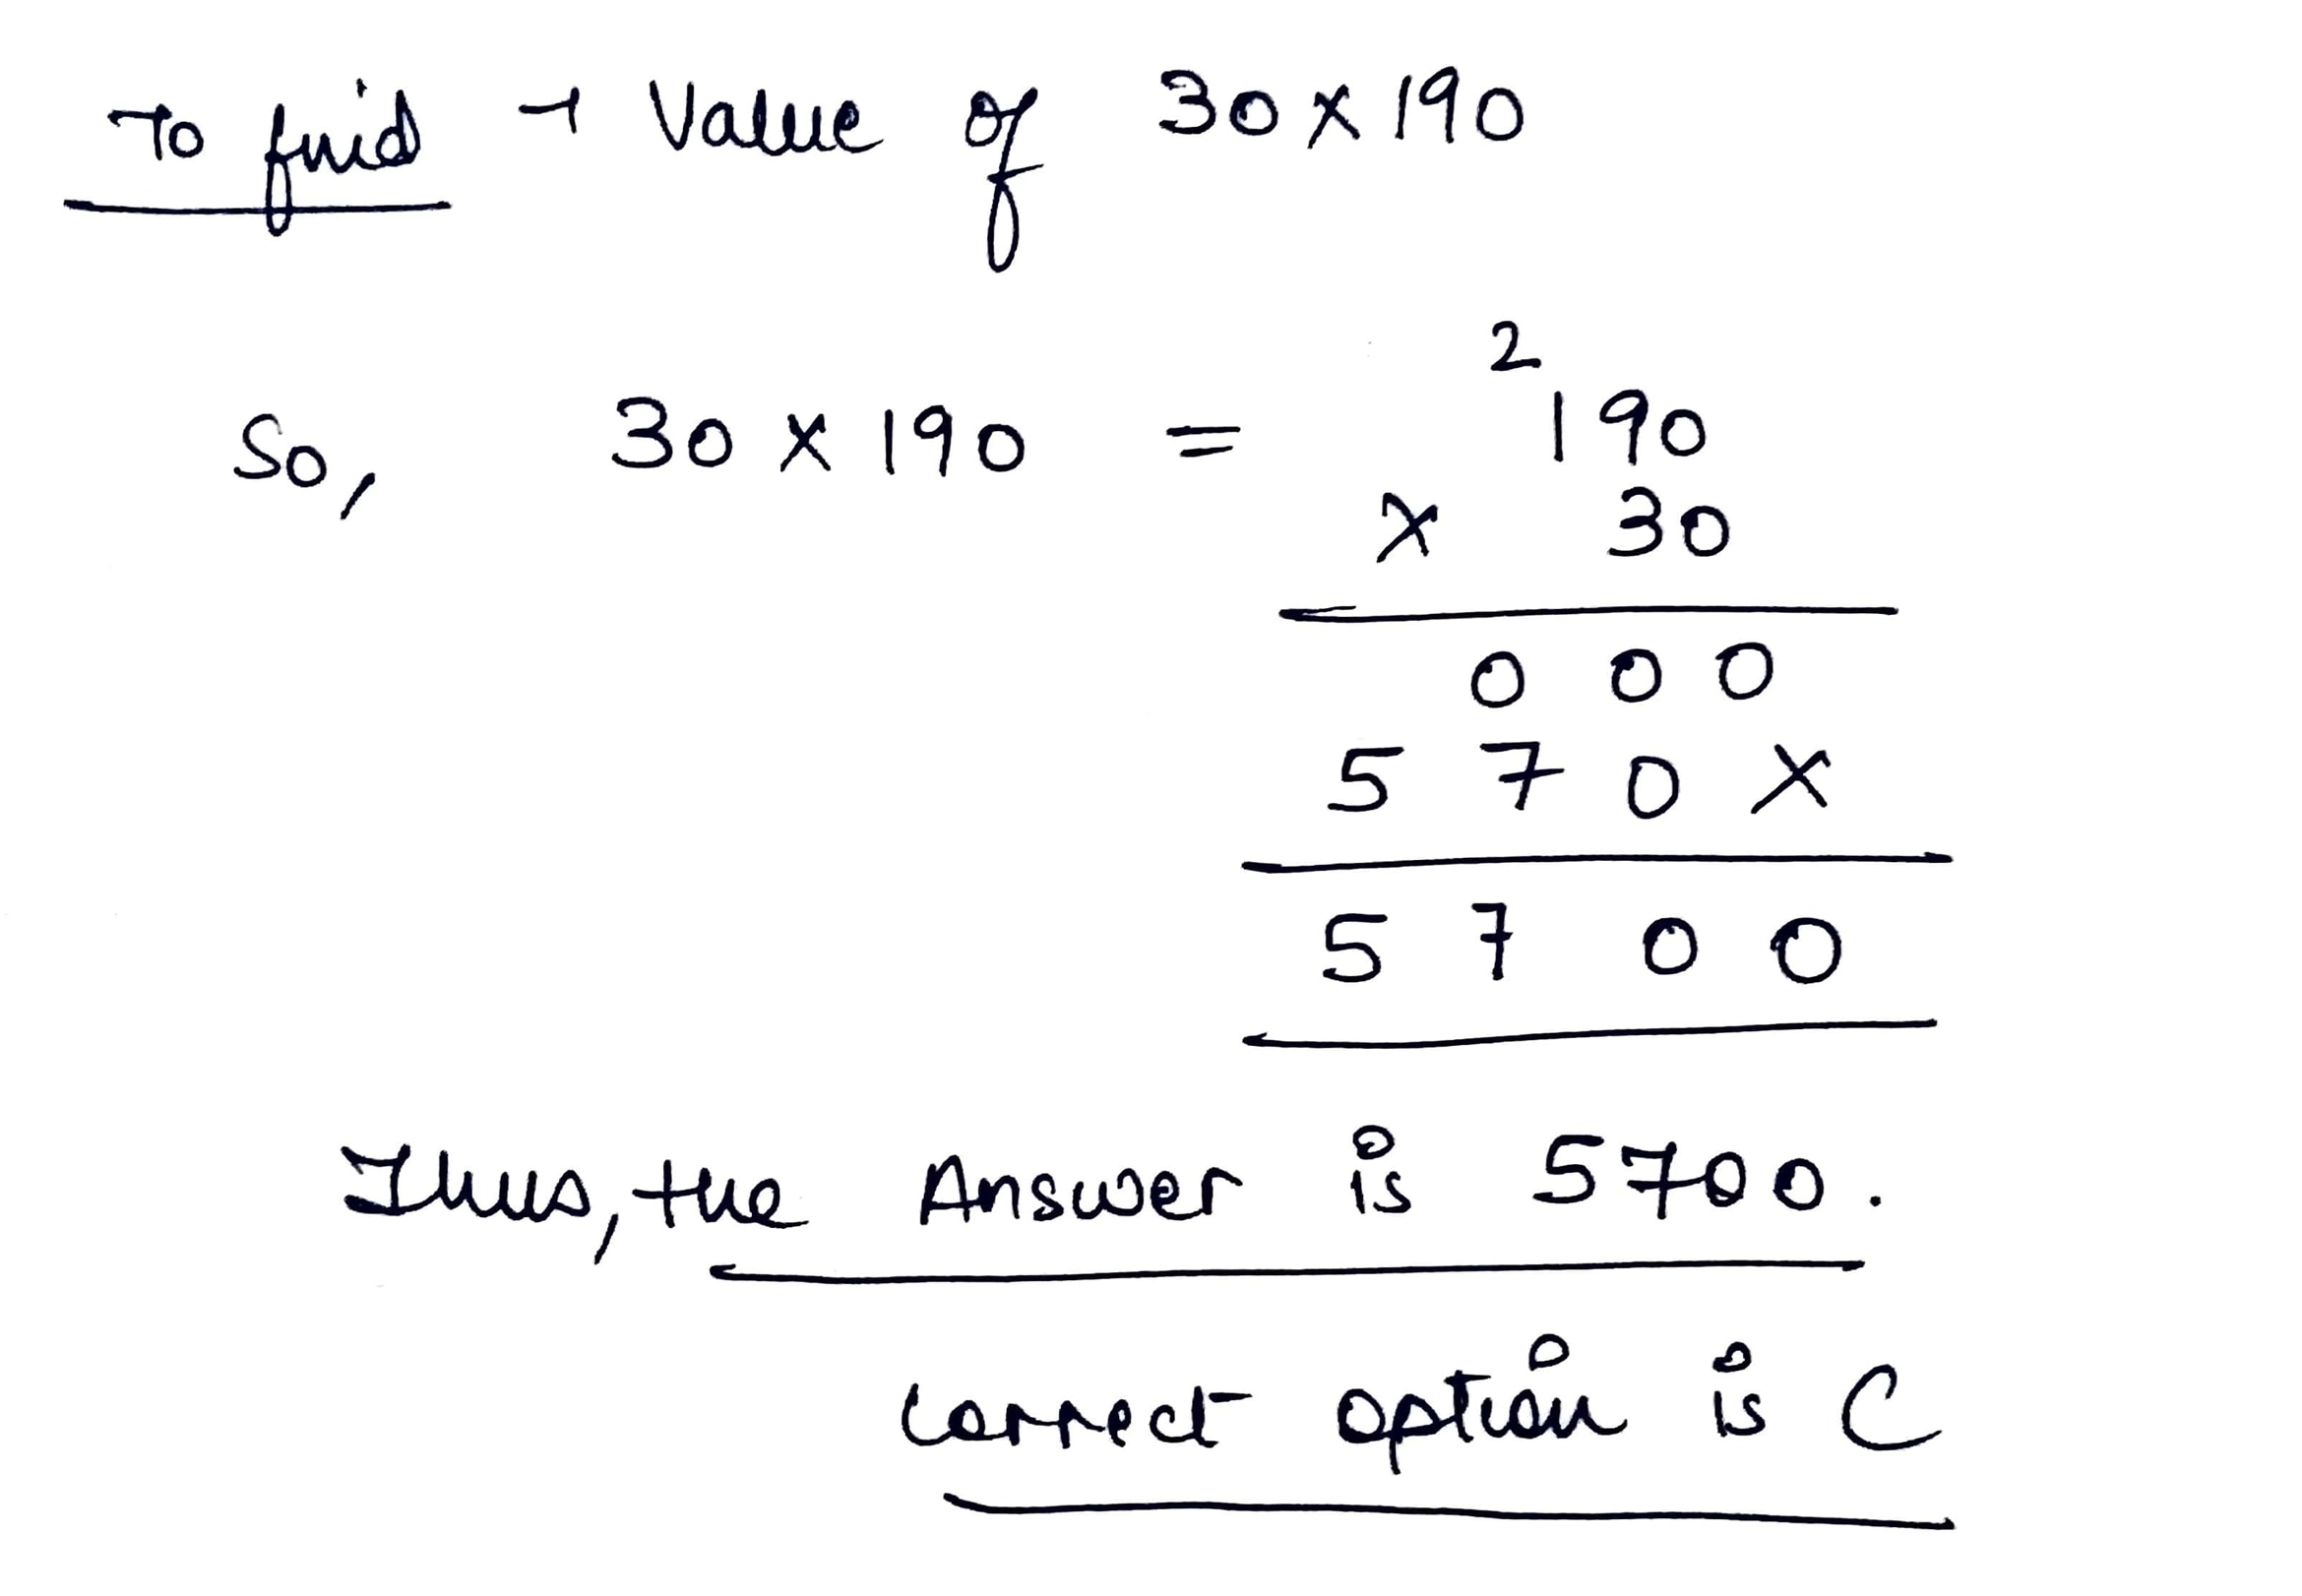 To find → Value of 30 x 190
2
So, 30 x 190 = 190
x 30
0 0 0
5 7 0 x
5 7 0 0
Thus, the Answer is 5700.
correct option is C